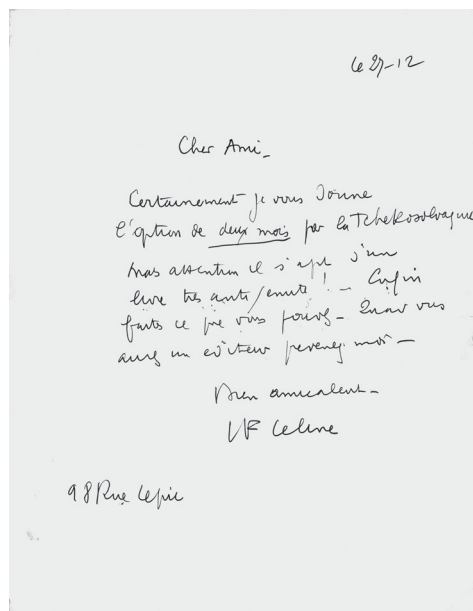 Le 27-12
Cher Ami_
Certainement je vous donne
l'option de deux mois pour la Tchekoslovaquie
mais attention il s'agit d'un
livre très antisémite ! _ Enfin
faites ce que vous pouvez _ Quand vous
aurez un éditeur prevenez moi _
Bien amicalement _
LF Celine
98 Rue Lepic